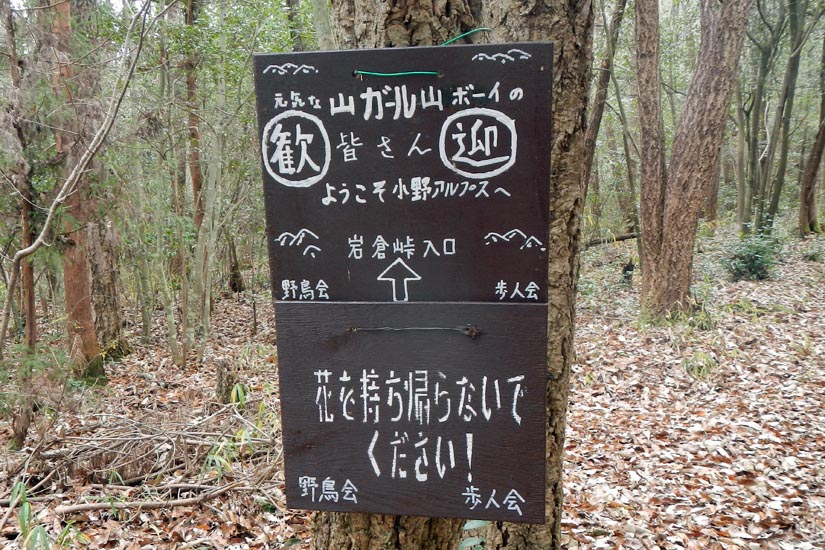 元気な山ガール山ボーイの
歓 皆さん 迎
ようこそ小野アルプスへ
岩倉峠入口
↑
野鳥会 歩人会
花を持ち帰らないで
ください!
野鳥会 歩人会